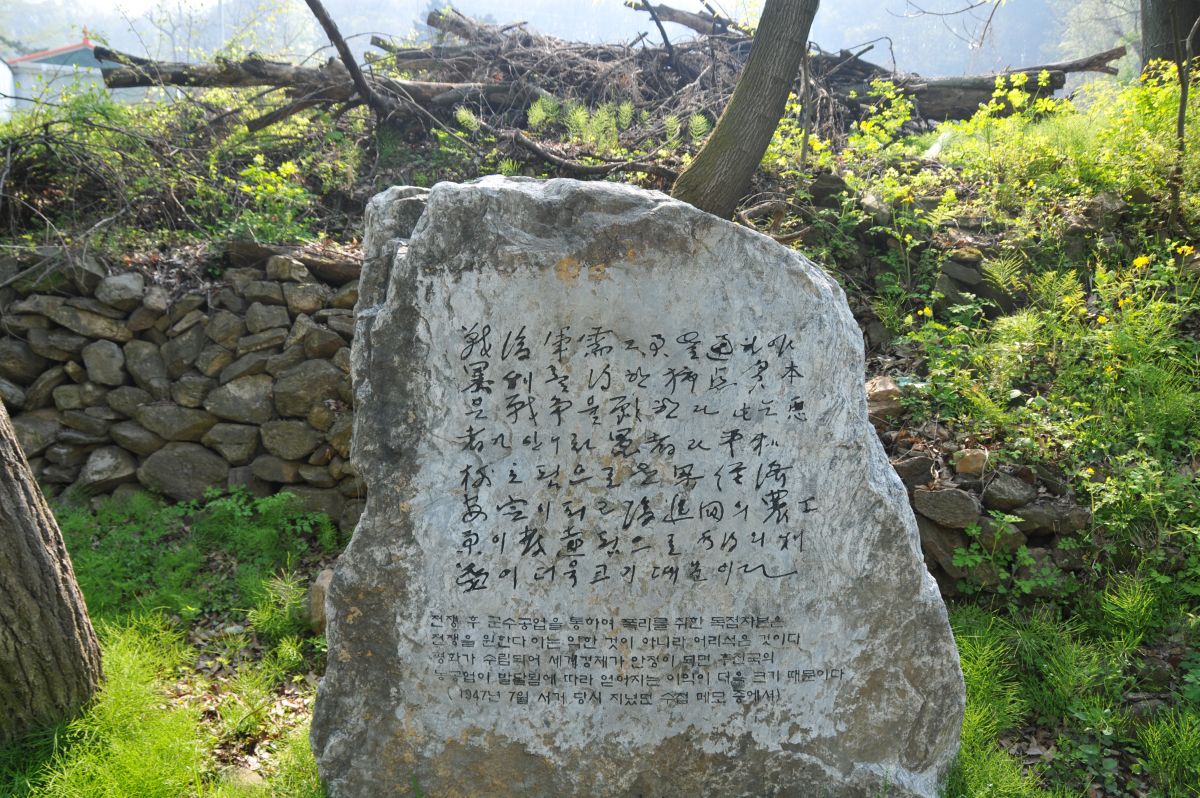 戰後軍需工業을 通하야
暴利를 得한 獨占資本
은 戰争을 願한다 此는 惡
者가 안이라 愚者다 平和
樹立됨으로 世界經濟
安定이 되고 後進國의 農工
業이 發達됨으로 利
益이 더욱 크기 때문이다
전쟁 후 군수공업을 통하여 폭리를 취한 독점자본은
전쟁을 원한다 이는 악한 것이 아니라 어리석은 것이다
평화가 수립되어 세계경제가 안정이 되면 후진국의
농공업이 발달됨에 따라 얻어지는 이익이 더욱 크기 때문이다
(1947년 7월 서거 당시 지녔던 수첩 메모 중에서)